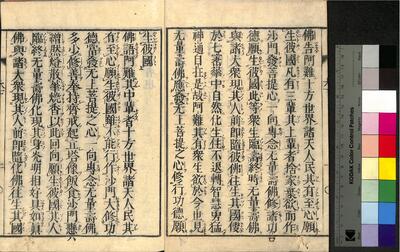 佛告阿難十方世界諸天人民其有至心願
生彼國凡有三輩其上輩者捨家棄欲而作
沙門發菩提心一向專念无量壽佛修諸功
德願生彼國此等衆生臨壽終時无量壽佛
與諸大衆現其人前即隨彼佛往生其國便
於七寶華中自然化生住不退轉智慧勇猛
神通自在是故阿難其有衆生欲於今世見
无量壽佛應發无上菩提之心修行功德願
生彼國
佛語阿難其中輩者十方世界諸天人民其
有至心願生彼國雖不能行作沙門大修功
德當發无上菩提之心一向專念无量壽佛
多少修善奉持齋戒起立塔像飯食沙門懸
繒然燈散華燒香以此迴向願生彼國其人
臨終无量壽佛化現其身光明相好具如眞
佛與諸大衆現其人前即隨化佛往生其國
KODAK Color Control Patches